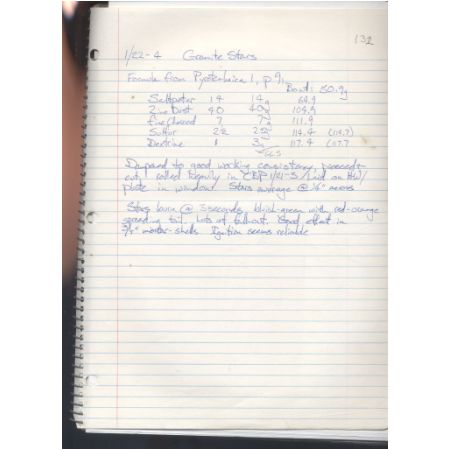 132
1/22-4 Granite Stars
Formula from Pyrotechnica 1, p 9,
Boat: 50.9g
Saltpeter 14 14g 64.9
Zinc Dust 40 40g 104.9
fine Charcoal 7 7g 111.9
Sulfur 2½ 2½g 114.4 (114.7)
Dextrine 1 3g 117.4 (117.7
Dampened to good working consistency,
cut, in CBP 1/21-3
plate in window. Stars average @
Stars burn @ 3 seconds, bluish-green with red-orange
spreading tail. Lots of fallout. Good effect in
mortar-shells Ignition seems reliable